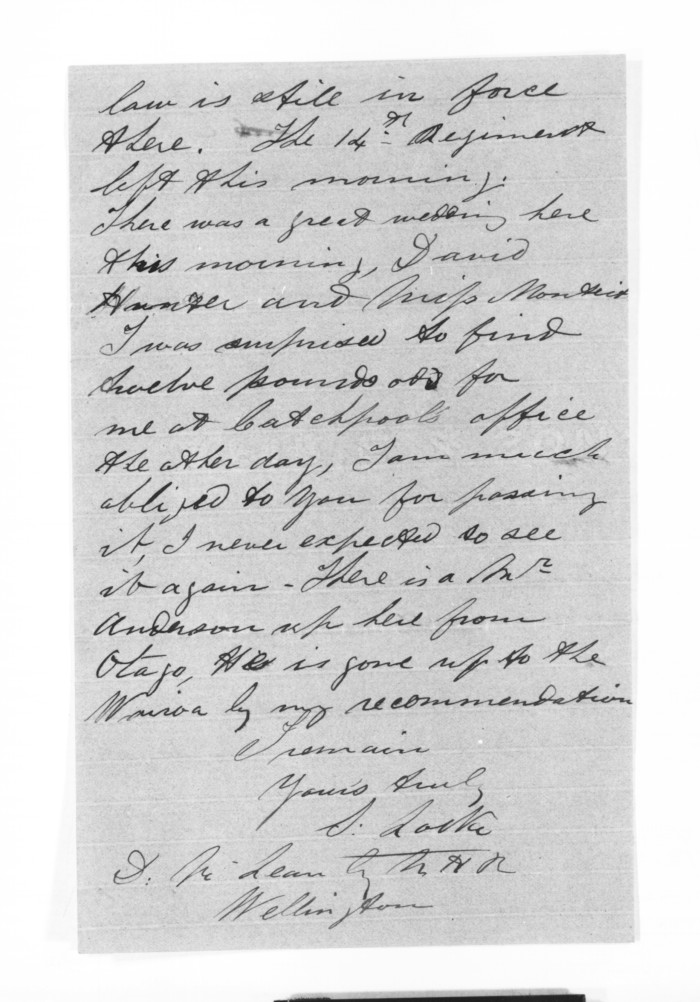 law is still in force
there. The 14th Regiment
left this morning.
There was a great wedding here
this morning, David
Hunter and Miss Monteith
I was surprised to find
twelve pounds odd for
me at Catchpool's office
the other day, I am much
obliged to you for passing
it, I never expected to see
it again - There is a Mr
Anderson up here from
Otago, He is gone up to the
Wairoa by my recommendation
I remain
Yours truly
S. Locke
D. McLean Esq M H R
Wellington